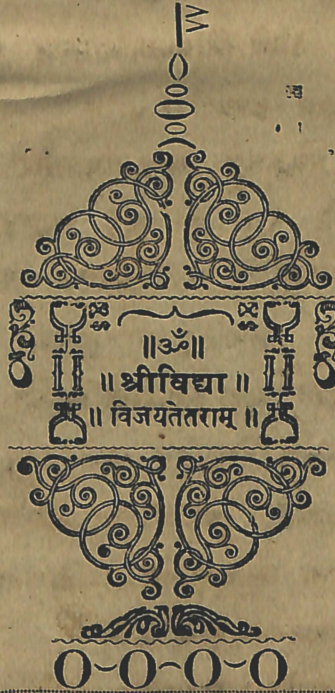 ॥ॐ॥
॥ श्रीविद्या ॥
॥ विजयतेतराम् ॥